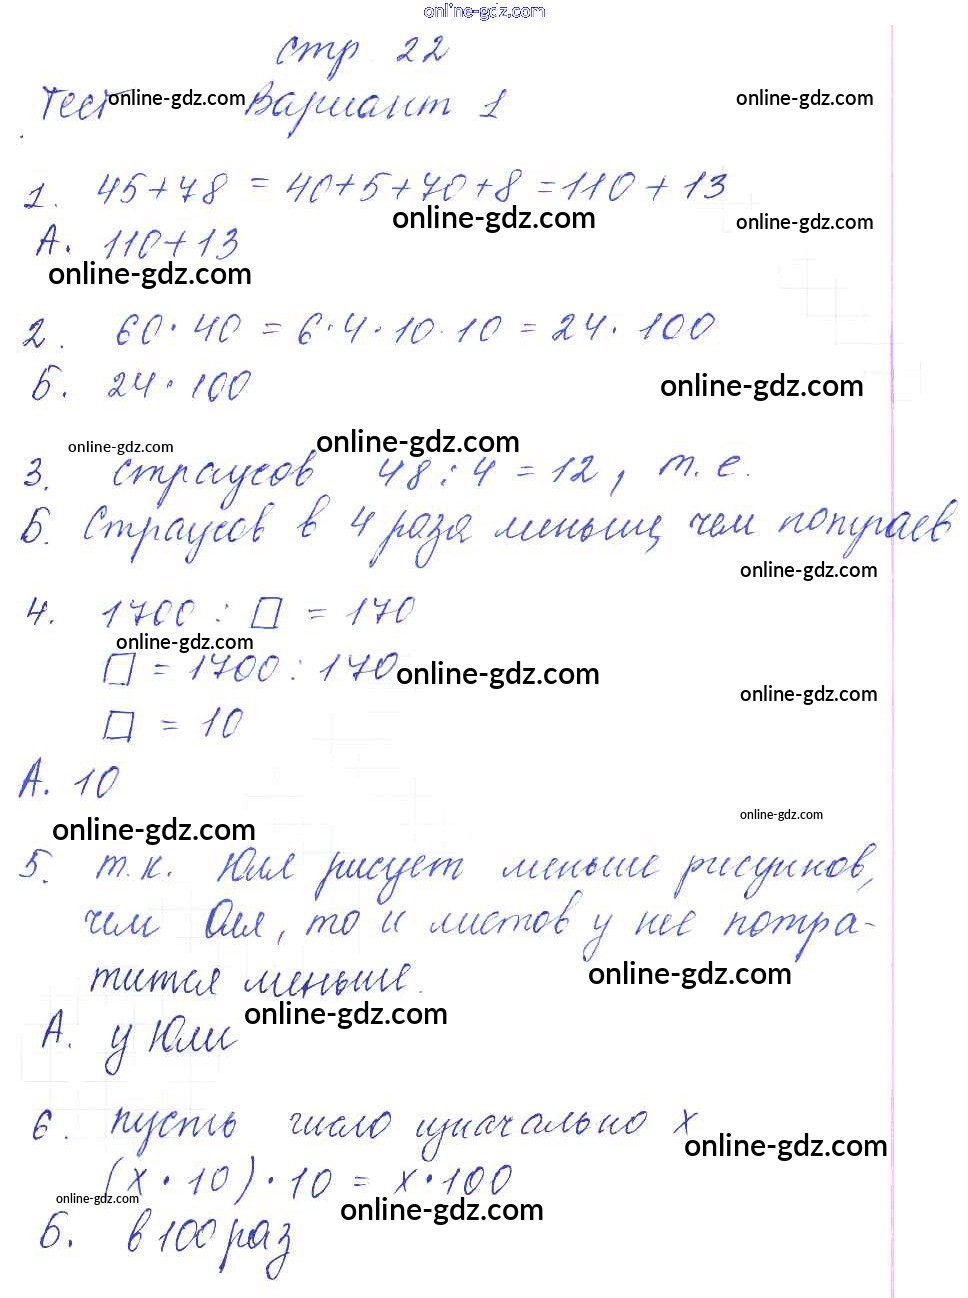 online-gdz.com
стр. 22
Тест online-gdz.com Вариант 1 online-gdz.com
1. 45+78 = 40+5+70+8 = 110 + 13
online-gdz.com online-gdz.com
А. 110+13
online-gdz.com
2. 60·40 = 6·4·10·10 = 24·100
Б. 24·100 online-gdz.com
online-gdz.com online-gdz.com
3. страусов 48:4 = 12, т.е.
Б. Страусов в 4 раза меньше, чем попугаев
online-gdz.com
4. 1700 : □ = 170
online-gdz.com
□ = 1700 : 170 online-gdz.com
online-gdz.com
□ = 10
А. 10
online-gdz.com online-gdz.com
5. т.к. Юля рисует меньше рисунков,
чем Оля, то и листов у нее потра-
тится меньше. online-gdz.com
online-gdz.com
А. у Юли
6. пусть число изначально x
online-gdz.com
(x·10)·10 = x·100
online-gdz.com online-gdz.com
Б. в 100 раз